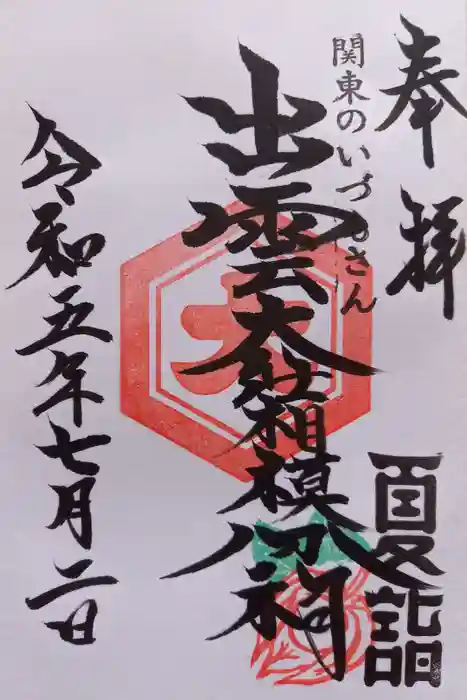 奉拝
夏詣
関東のいづもさん
出雲大社相模分祠
大
令和五年七月二日